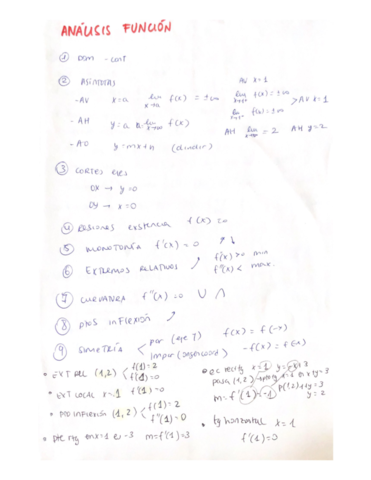 ANÁLISIS FUNCIÓN
① Dom - cont
② ASÍNTOTAS
- AV x=a lim x→a f(x) = ±∞
- AH y=a lim x→∞ f(x)
- AO y=mx+n
AV x=1
lim f(x)=±∞
lim f(x)=±∞ > AV x=1
AH lim = 2 AH y=2
③ CORTES EJES
OX → y=0
OY → x=0
④ REGIONES EXISTENCIA f(x)=0
⑤ MONOTONÍA f'(x)=0
⑥ EXTREMOS RELATIVOS f''(x)>0 min
f''(x)< max.
⑦ CURVATURA f''(x)=0 ∪ ∩
⑧ PTOS INFLEXIÓN
⑨ SIMETRÍA < par (eje Y) f(x) = f(-x)
impar -f(x)=f(-x)
• EXT REL (1,2) < f(1)=2
f'(1)=0
• EXT LOCAL x=1 f'(1)=0
• PTO INFLEXIÓN (1,2) < f(1)=2
f''(1)=0
• pte rtg en x=1 es -3 m=f'(1)=3
recta x=1
pasa (1,2)
m=f'(1)=-1
y=2
• tg horizontal x=1
f'(1)=0